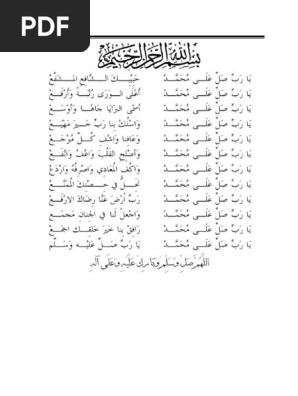 PDF
بسم الله الرحمن الرحيم
يَا رَبِّ صَلِّ عَلَى مُحَمَّدْ حَبِيْبِكَ الشَّافِعِ الْمُشَفَّعْ
يَا رَبِّ صَلِّ عَلَى مُحَمَّدْ أَعْلَى الْوَرَى رُتْبَةً وَأَرْفَعْ
يَا رَبِّ صَلِّ عَلَى مُحَمَّدْ أَسْمَى الْبَرَايَا جَاهًا وَأَوْسَعْ
يَا رَبِّ صَلِّ عَلَى مُحَمَّدْ وَاسْلُكْ بِنَا رَبِّ خَيْرَ مَهْيَعْ
يَا رَبِّ صَلِّ عَلَى مُحَمَّدْ وَعَافِنَا وَاشْفِ كُلَّ مُوْجَعْ
يَا رَبِّ صَلِّ عَلَى مُحَمَّدْ وَأَصْلِحِ الْقَلْبَ وَاعْفُ وَانْفَعْ
يَا رَبِّ صَلِّ عَلَى مُحَمَّدْ وَاكْفِ الْمُعَادِي وَاصْرِفْهُ وَارْدَعْ
يَا رَبِّ صَلِّ عَلَى مُحَمَّدْ نَحُلُّ فِي حِصْنِكَ الْمُمَنَّعْ
يَا رَبِّ صَلِّ عَلَى مُحَمَّدْ رَبِّ ارْضَ عَنَّا رِضَاكَ الارْفَعْ
يَا رَبِّ صَلِّ عَلَى مُحَمَّدْ وَاجْعَلْ لَنَا فِي الْجِنَانِ مَجْمَعْ
يَا رَبِّ صَلِّ عَلَى مُحَمَّدْ رَافِقْ بِنَا خَيْرَ خَلْقِكَ اجْمَعْ
يَا رَبِّ صَلِّ عَلَى مُحَمَّدْ يَا رَبِّ صَلِّ عَلَيْهِ وَسَلِّمْ
اللهم صل وسلم وبارك عليه وعلى آله